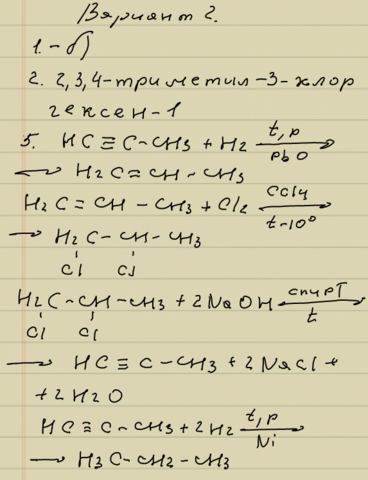 Вариант 2.
1. - б)
2. 2,3,4-триметил-3-хлор
гексен-1
5. HC≡C-CH3 + H2 t,p PbO →
→ H2C=CH-CH3
H2C=CH-CH3 + Cl2 CCl4 t~10° →
→ H2C-CH-CH3
Cl Cl
H2C-CH-CH3 + 2NaOH спирт t →
Cl Cl
→ HC≡C-CH3 + 2NaCl +
+ 2H2O
HC≡C-CH3 + 2H2 t,p Ni →
→ H3C-CH2-CH3